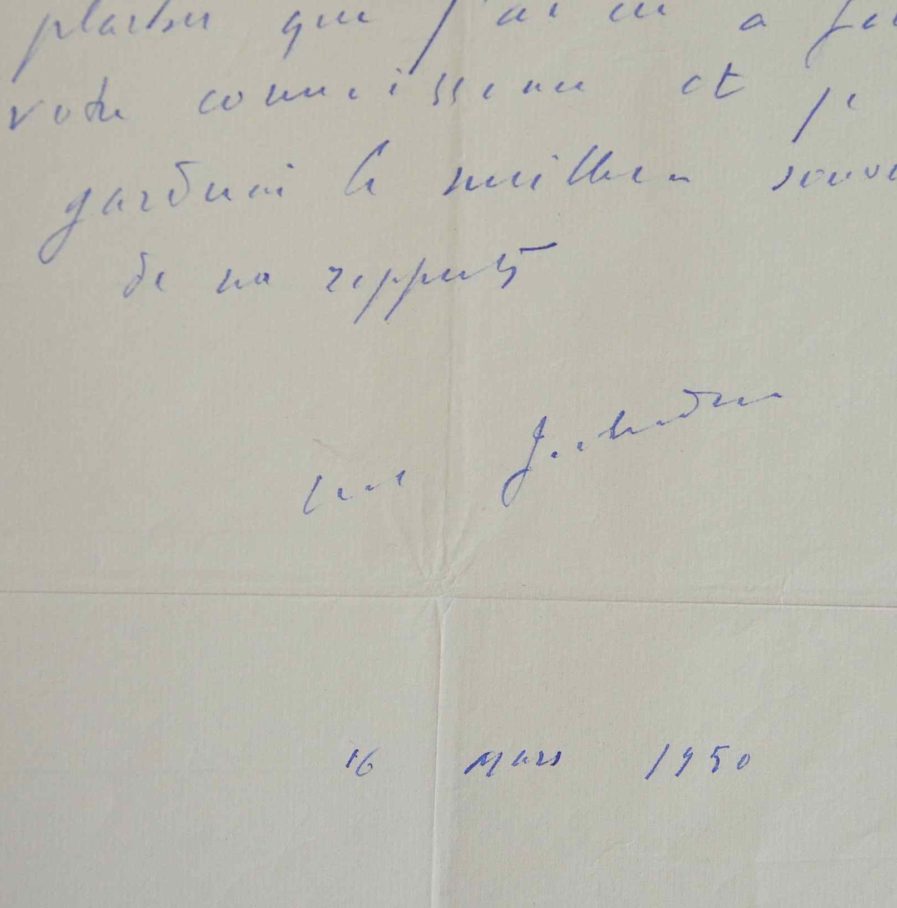 plaisir que j'ai eu à fai
votre connaissance et je
garderai le meilleur souve
de nos rapports
16 Mars 1950